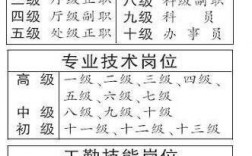 三级 厅级正职 八级 科级副职
四级 厅级副职 九级 科员
五级 处级正职 十级 办事员
专业技术岗位
高级 一级、二级、三级、四级、
五级、六级、七级
中级 八级、九级、十级
初级 十一级、十二级、十三级
工勤技能岗位